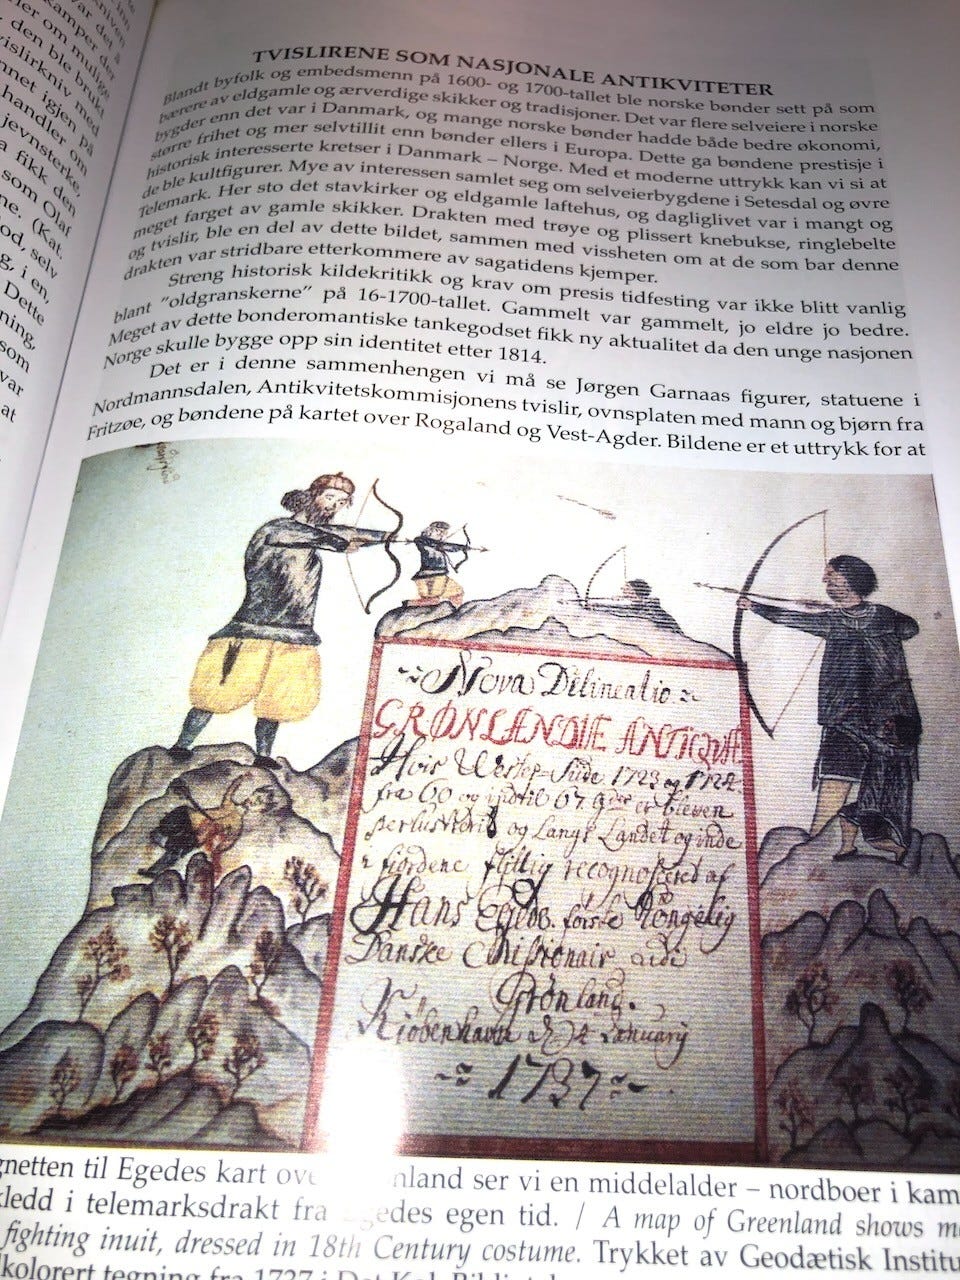 inn
niven
var det
kamper der
ler om mulige
den ble brukt
vislirkniv med
nnet igjen på
handler om
jevnsterke,
a fikk den
som Olaf
ne. (Kat.
od, selv
g, i en,
Dette
ning,
som
var
at
TVISLIRENE SOM NASJONALE ANTIKVITETER
Blandt byfolk og embedsmenn på 1600- og 1700-tallet ble norske bønder sett på som
bærere av eldgamle og ærverdige skikker og tradisjoner. Det var flere selveiere i norske
bygder enn det var i Danmark, og mange norske bønder hadde både bedre økonomi,
større frihet og mer selvtillit enn bønder ellers i Europa. Dette ga bøndene prestisje i
historisk interesserte kretser i Danmark – Norge. Med et moderne uttrykk kan vi si at
de ble kultfigurer. Mye av interessen samlet seg om selveierbygdene i Setesdal og øvre
Telemark. Her sto det stavkirker og eldgamle laftehus, og dagliglivet var i mangt og
meget farget av gamle skikker. Drakten med trøye og plissert knebukse, ringlebelte
og tvislir, ble en del av dette bildet, sammen med vissheten om at de som bar denne
drakten var stridbare etterkommere av sagatidens kjemper.
Streng historisk kildekritikk og krav om presis tidfesting var ikke blitt vanlig
blant "oldgranskerne" på 16-1700-tallet. Gammelt var gammelt, jo eldre jo bedre.
Meget av dette bonderomantiske tankegodset fikk ny aktualitet da den unge nasjonen
Norge skulle bygge opp sin identitet etter 1814.
Det er i denne sammenhengen vi må se Jørgen Garnaas figurer, statuene i
Nordmannsdalen, Antikvitetskommisjonens tvislir, ovnsplaten med mann og bjørn fra
Fritzøe, og bøndene på kartet over Rogaland og Vest-Agder. Bildene er et uttrykk for at
Nova Delineatio
GRØNLÆNDIÆ ANTIQVÆ
Hvis Wester-Side 1723 og 1724
fra 60 og indtil 67 gder er bleven
og Langs Landet og inde
fiordene flittig recognosceret af
Hans Egede første Kongelig
Danske Missionair
Grønland.
Kiøbenhavn January
1737
gnetten til Egedes kart ove nland ser vi en middelalder – nordboer i kam
kledd i telemarksdrakt fra Egedes egen tid. / A map of Greenland shows m
fighting inuit, dressed in 18th Century costume. Trykket av Geodætisk Institu
lkolorert tegning fra 1737 i Det Kgl. Bibliotek